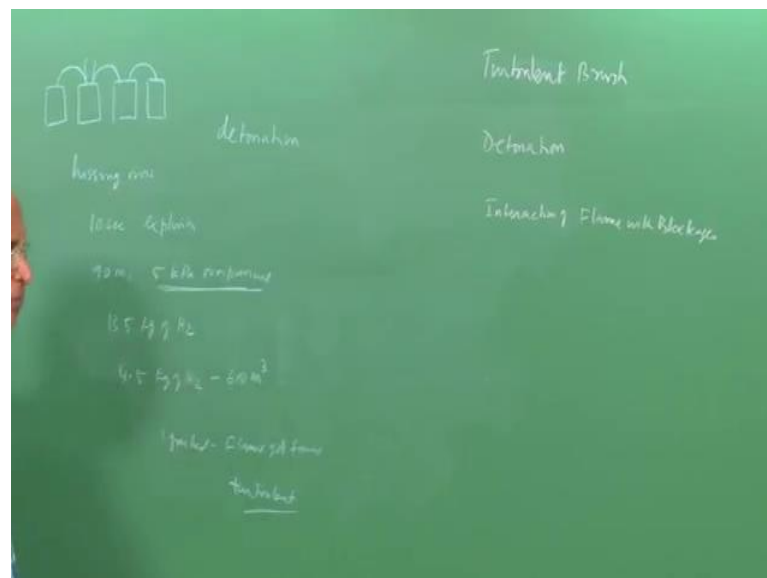 detonation
hissing noise
10 sec explosion
90 m, 5 kPa overpressure
13.5 kg of H2
4.5 kg of H2 - 60 m3
Ignited - Flame got
turbulent
Turbulent Brush
Detonation
Interacting Flame with Blockages